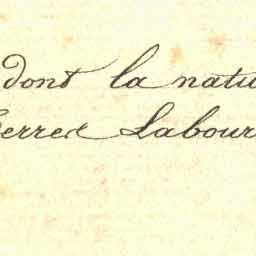 dont la natu
Terre Labour